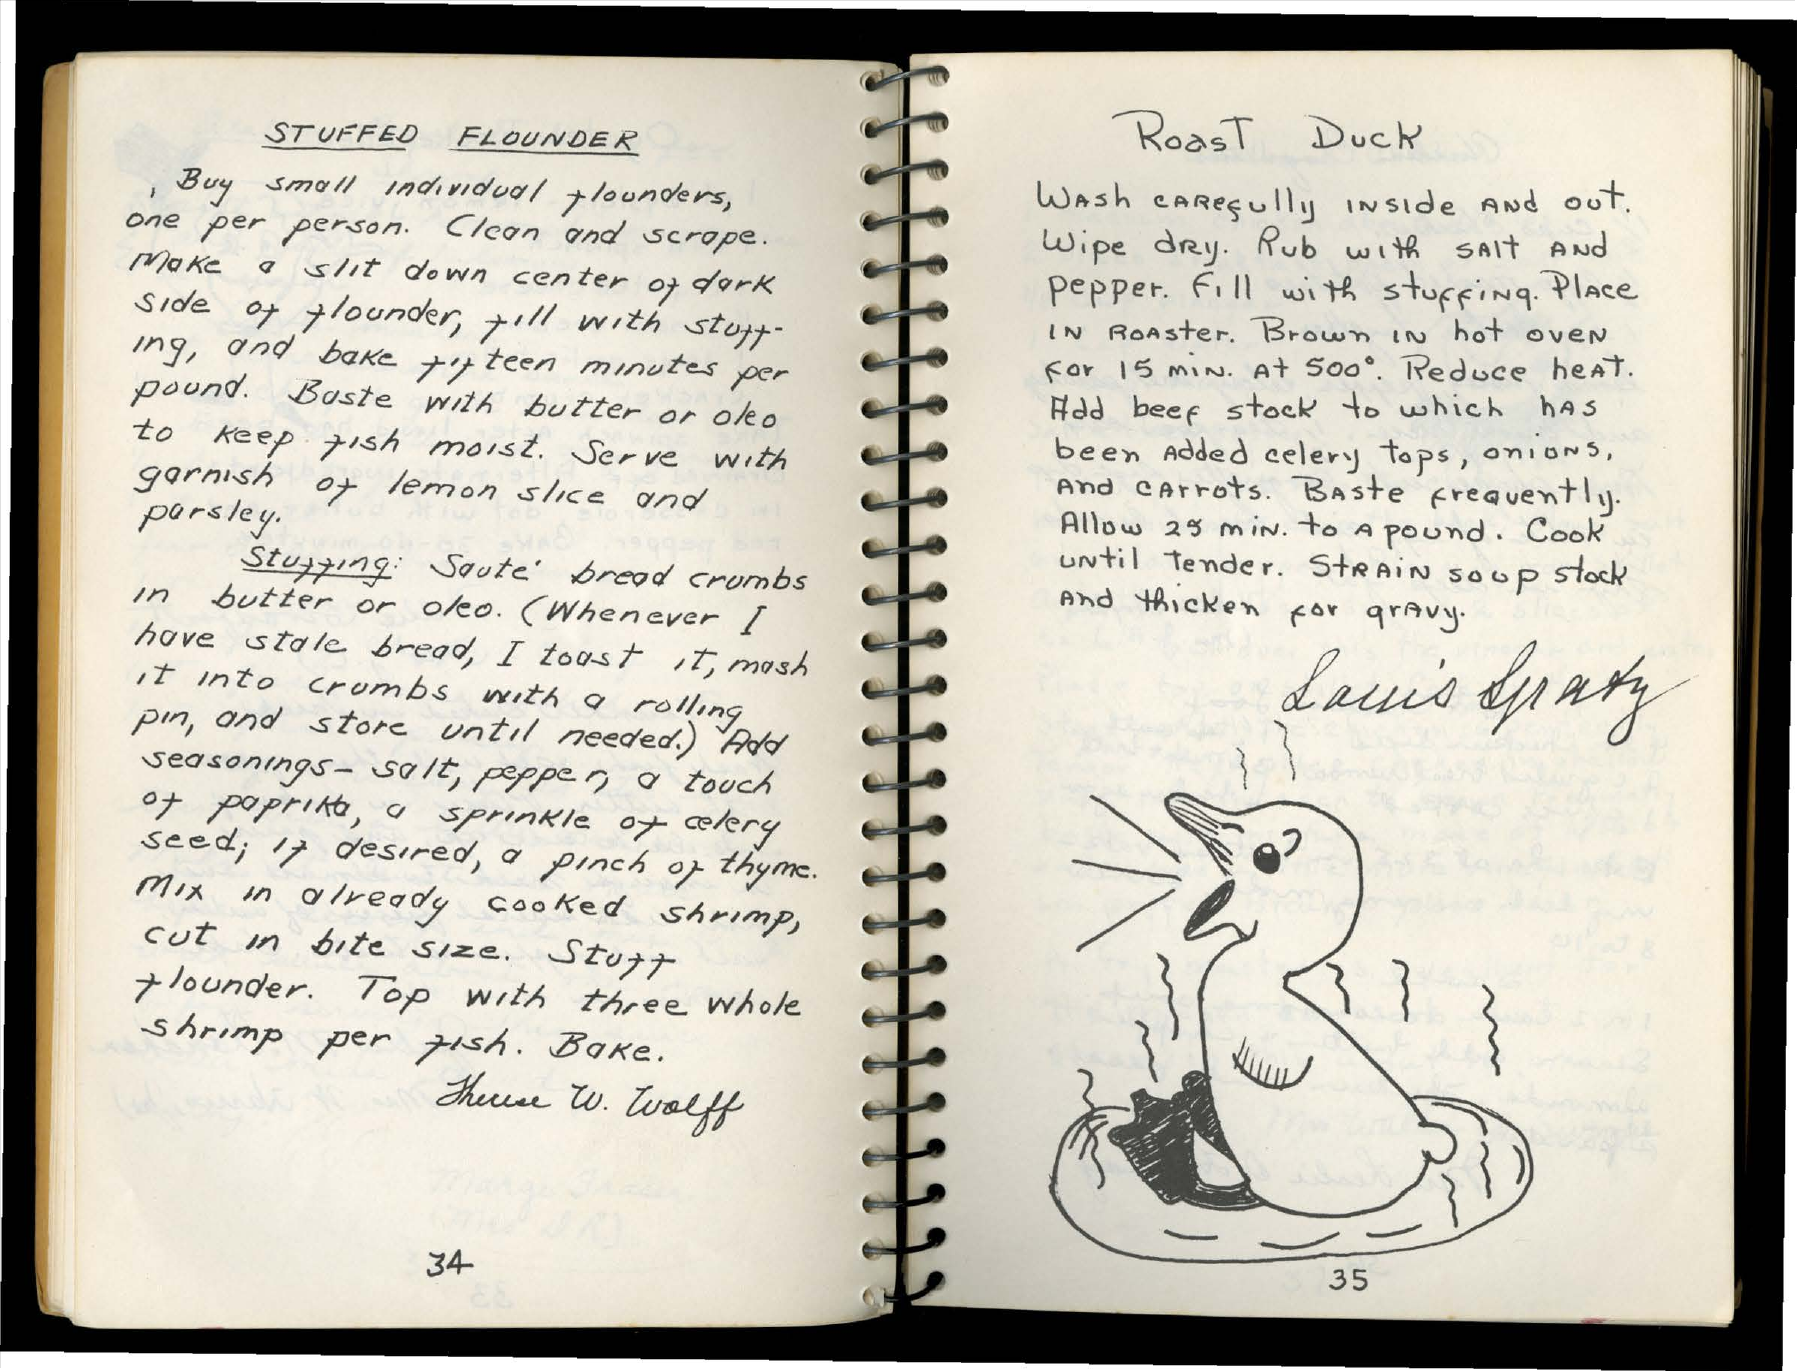 STUFFED FLOUNDER
Buy small individual flounders,
one per person. Clean and scrape.
Make a slit down center of dark
side of flounder, fill with stuff-
ing, and bake fifteen minutes per
pound. Baste with butter or oleo
to keep fish moist. Serve with
garnish of lemon slice and
parsley.
Stuffing: Sauté bread crumbs
in butter or oleo. (Whenever I
have stale bread, I toast it, mash
it into crumbs with a rolling
pin, and store until needed.) Add
seasonings- salt, pepper, a touch
of paprika, a sprinkle of celery
seed; if desired, a pinch of thyme.
Mix in already cooked shrimp,
cut in bite size. Stuff
flounder. Top with three whole
shrimp per fish. Bake.
Therese W. Wolff
34
Roast Duck
Wash carefully inside and out.
Wipe dry. Rub with salt and
pepper. Fill with stuffing. Place
in roaster. Brown in hot oven
for 15 min. at 500°. Reduce heat.
Add beef stock to which has
been added celery tops, onions,
and carrots. Baste frequently.
Allow 25 min. to a pound. Cook
until tender. Strain soup stock
and thicken for gravy.
Louis Spatz
35